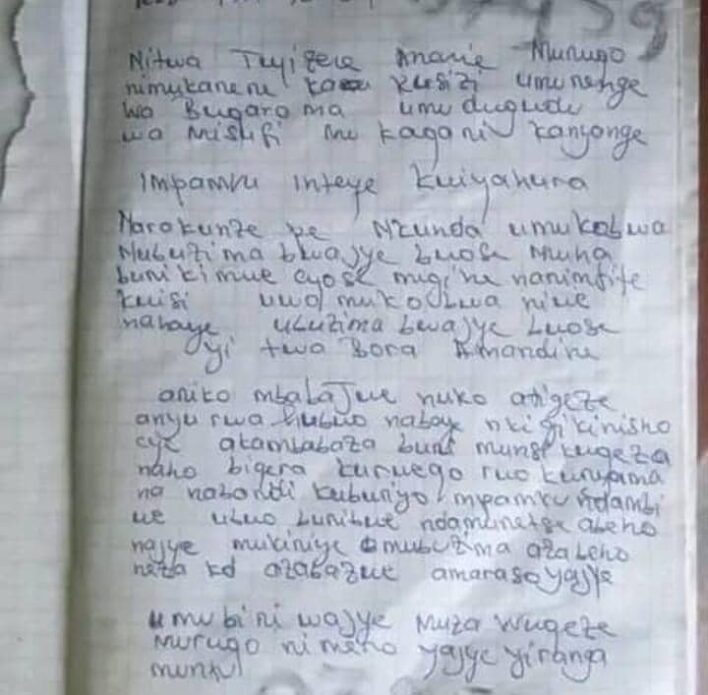 Nitwa Tuyizere Ananie Murugo
nimukanene ka Rusizi umurenge
wo Bugarama umudugudu
wa Misufi mu kagari kanyonge
Impamvu inteye kwiyahura
Narokunze pe Nkunda umukobwa
Mubuzima bwajye bwose Muha
buri kimwe cyose mugihe narimfite
kwisi uwo mukobwa niwe
nahaye ubuzima bwajye bwose
yitwa Bora Amandine
ariko mbabajwe nuko atigeze
anyurwa nubwo nabaye nkigikinisho
cye akambabaza buri munsi kugeza
naho bigera kurwego rwo kuryama
na nabandi kubuniyo mpamvu ndambi
we ubuo buribwe ndamuretse abeho
najye mukiniye mubuzima azabeho
neza kd azabazwe amaraso yajye
umubiri wajye muza wugeze
murugo nimeno yajye yiranga
muntu